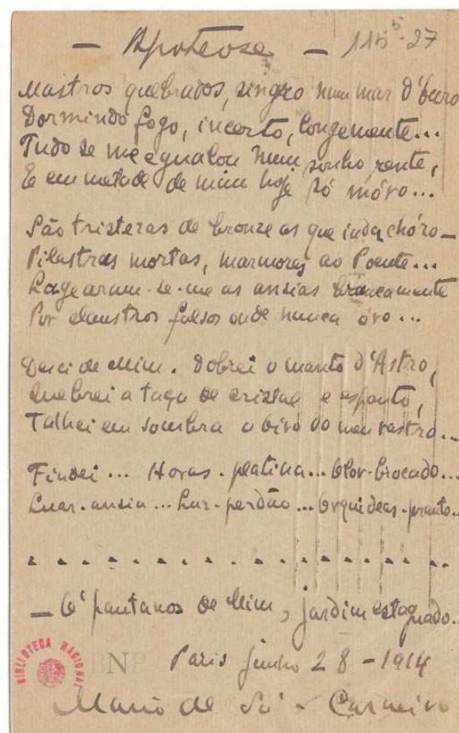 — Apoteose — 115⁵-27
Mastros quebrados, singro num mar d'Ouro
Dormindo fogo, incerto, longemente...
Tudo se me egualou num sonho rente,
E em metade de mim hoje só móro...
São tristezas de bronze as que inda chóro—
Pilastras mortas, marmores ao Poente...
Lagearam-se-me as ansias brancamente
Por claustros falsos onde nunca óro...
Desci de Mim. Dobrei o manto d'Astro,
Quebrei a taça de cristal e espanto,
Talhei em sombra o Oiro do meu rastro...
Findei... Horas-platina... Olor-brocado...
Luar-ansia... Luz-perdão... Orquideas-pranto...
. . . . . . . . . . . . . . . .
— Ó pantanos de Mim, jardim estagnado...
Paris junho 28-1914
Mario de Sá-Carneiro
BIBLIOTECA NACIONAL
BNP